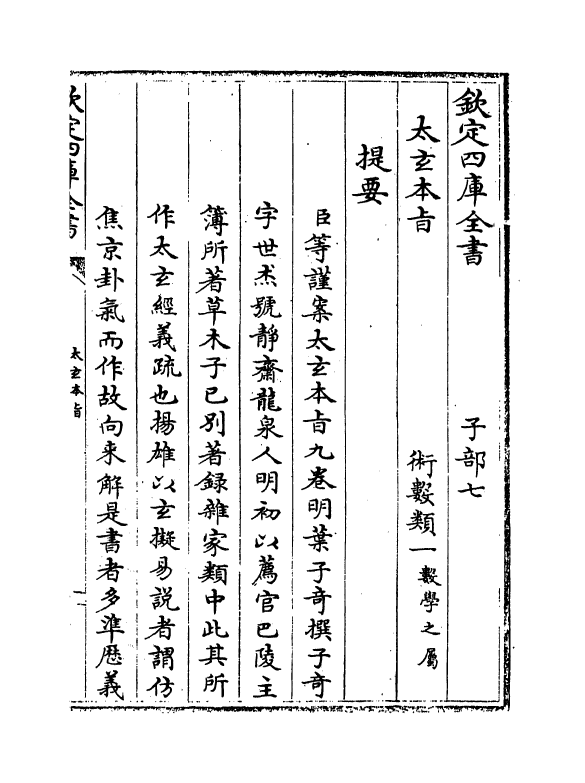 欽定四庫全書　子部七
太玄本旨　術數類一數學之屬
提要
臣等謹案太玄本旨九卷明葉子奇撰子奇
字世杰號靜齋龍泉人明初以薦官巴陵主
簿所著草木子已別著録雜家類中此其所
作太玄經義疏也揚雄以玄擬易說者謂仿
焦京卦氣而作故向來解是書者多準厯義
欽定四庫全書
太玄本旨
一